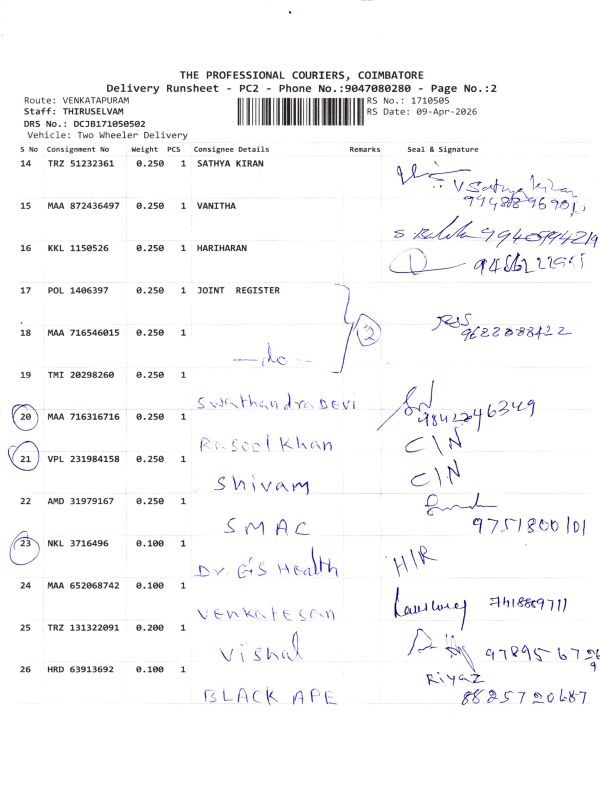 THE PROFESSIONAL COURIERS, COIMBATORE
Delivery Runsheet - PC2 - Phone No.:9047080280 - Page No.:2
Route: VENKATAPURAM RS No.: 1710505
Staff: THIRUSELVAM RS Date: 09-Apr-2026
DRS No.: DCJB171050502
Vehicle: Two Wheeler Delivery
S No Consignment No Weight PCS Consignee Details Remarks Seal & Signature
14 TRZ 51232361 0.250 1 SATHYA KIRAN
V Sathya kiran
15 MAA 872436497 0.250 1 VANITHA
9940594219
16 KKL 1150526 0.250 1 HARIHARAN
17 POL 1406397 0.250 1 JOINT REGISTER
2
18 MAA 716546015 0.250 1
—do—
19 TMI 20298260 0.250 1
Swathandra Devi
20 MAA 716316716 0.250 1
9842246349
Rasool Khan C/N
21 VPL 231984158 0.250 1
Shivam C/N
22 AMD 31979167 0.250 1
SMAC 9751800101
23 NKL 3716496 0.100 1
Dr. G's Health H/R
24 MAA 652068742 0.100 1
Venkatesan 7418889711
25 TRZ 131322091 0.200 1
Vishal 9789567269
26 HRD 63913692 0.100 1 Riyaz
BLACK APE 8825720687